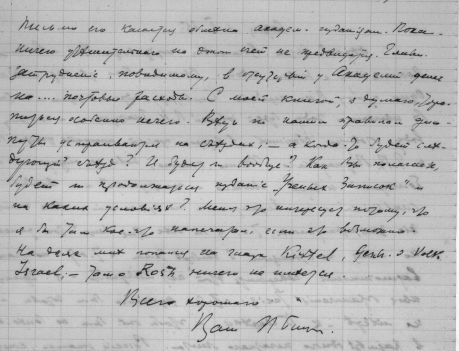 Письмо его касается обмена академ. изданиями. Пока
ничего утешительного на этот счет не предвидится. Главн.
затруднение, повидимому, в отсутствии у Академии денег
на.... почтовые расходы. С моей книгой, я думаю, торо-
питься особенно нечего. Ведь по нашим правилам дис-
путы устраиваем на съездах, — а когда-то будет сле-
дующий съезд? И будет ли вообще? Как Вы полагаете,
будет ли продолжаться издание „Ученых Записок" и
на каких условиях? Меня это интересует потому, что
я бы там кое-что напечатал, если это возможно.
На днях мне попался на глаза Kittel, Gesch. d. Volk
Israel, — том о Rosh ничего не имеется.
Всего хорошего
Ваш П